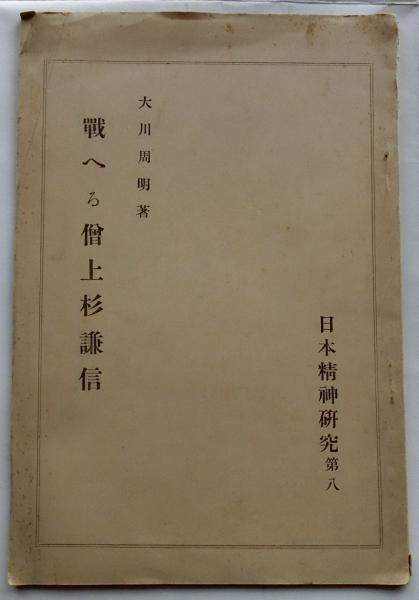 日本精神研究第八
大川周明著
戰へる僧上杉謙信